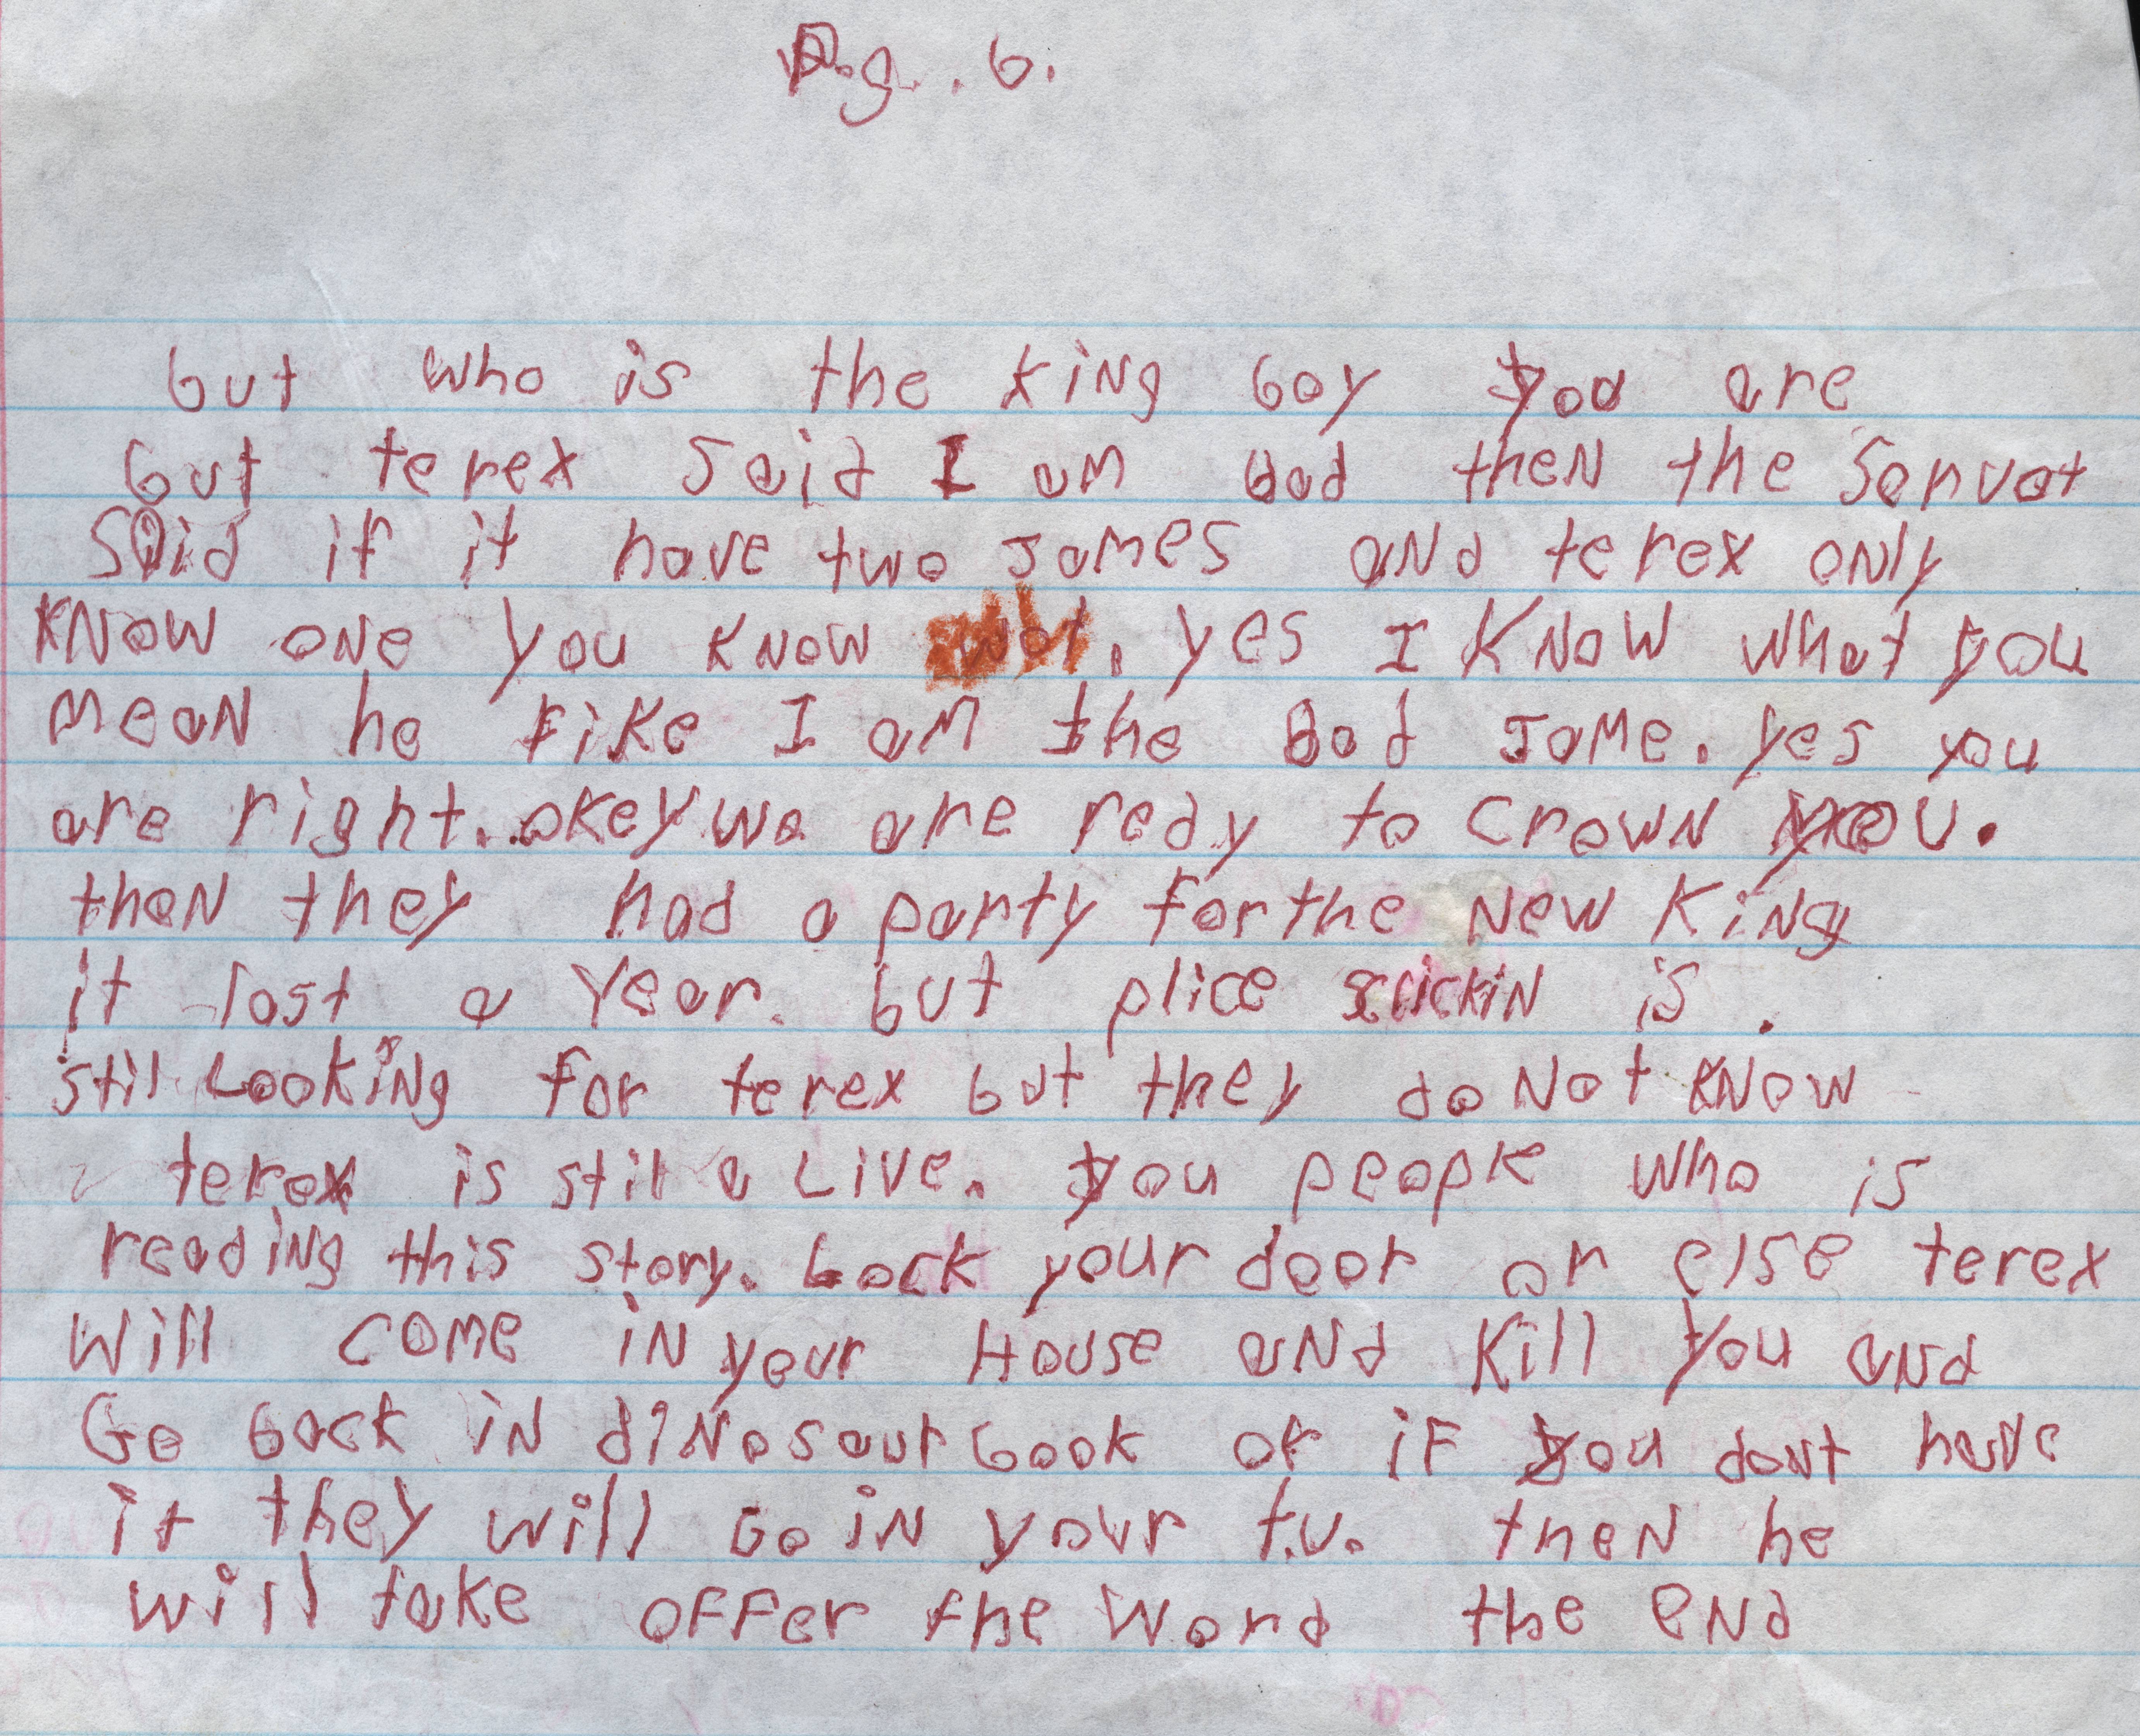 Pg. 6.
but who is the king boy you are
but terex said I am bad then the Servat
Said if it have two James and terex only
know one you know wot. yes I know what you
mean he like I am the Bad Jame. yes you
are right. okey we are redy to crown you.
then they had a party for the New King
it last a Year. but plice is.
stil Looking for terex but they do Not know
terex is stil a Live. you people who is
reading this story. Lock your door or else terex
will come in your House and Kill you and
Go back in dinosaur book or if you dont have
it they will Go in your t.v. then he
will take offer the word the end